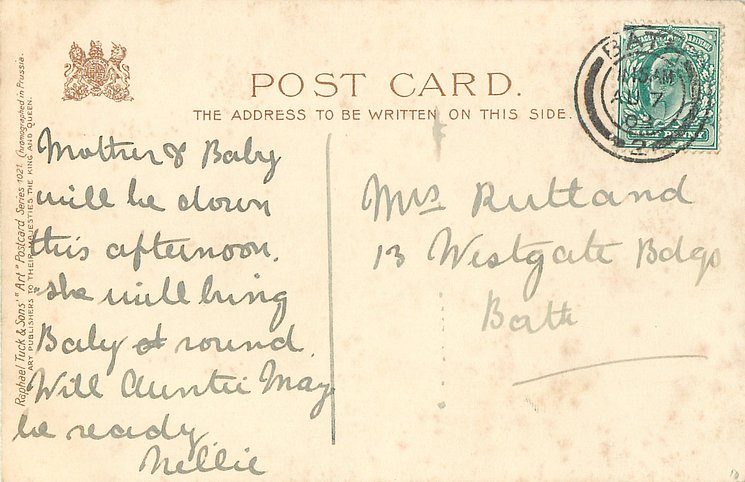 POST CARD.
THE ADDRESS TO BE WRITTEN ON THIS SIDE.
Raphael Tuck & Sons' "Art" Postcard Series 1021. (Chromographed in Prussia.
ART PUBLISHERS TO THEIR MAJESTIES THE KING AND QUEEN.
Mother & Baby
will be down
this afternoon.
she will bring
Baby round.
Will Auntie May
be ready
Nellie
Mrs Rutland
13 Westgate Bdgs
Bath
BATH
AU 7
03
2
HALF PENNY